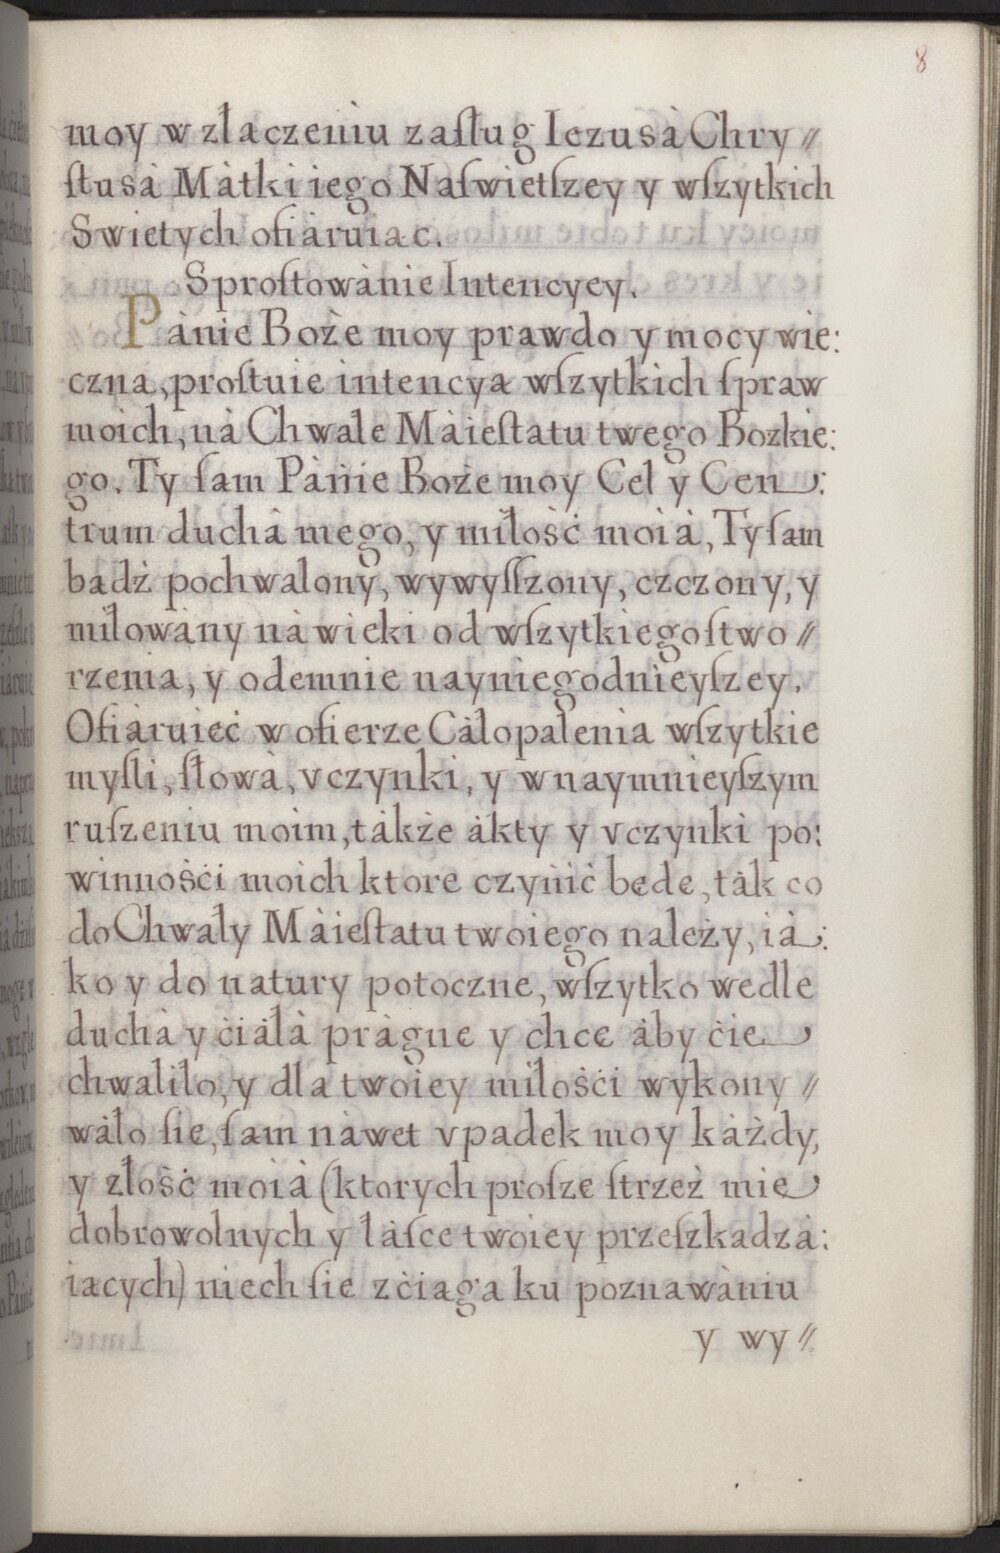 8
moy w złaczeniu zaſług Iezusà Chry //
ſtusà Màtki iego Naſwietſzey y wſzytkich
Swietych ofiàruiac.
Sproſtowànie Intencyey.
Pànie Boże moy prawdo y mocy wie:
czna, proſtuie intencya wſzytkich ſpraw
moich, nà Chwałe Màieſtatu twego Bozkie:
go. Ty ſam Pànie Boże moy Cel y Cen:
trum duchà mego, y miłość moià, Ty ſam
badź pochwalony, wywyſſzony, czczony, y
miłowàny nà wieki od wſzytkiego ſtwo //
rzenia, y odemnie nayniegodnieyſzey.
Ofiàruieć w ofierze Càłopalenia wſzytkie
myſli, ſłowà, vczynki, y w naymnieyſzym
ruſzeniu moim, tàkże àkty y vczynki po:
winności moich ktore czynić bede, tàk co
do Chwały Màieſtatu twoiego należy, ià:
ko y do natury potoczne, wſzytko wedle
duchà y ciàłà pràgne y chce àby cie
chwaliło, y dla twoiey miłości wykony //
wàło ſie, ſam nàwet vpadek moy każdy,
y złość moià (ktorych proſze ſtrzeż mie
dobrowolnych y łàſce twoiey przeſzkadzà:
iacych) niech ſie zciaga ku poznawàniu
y wy //